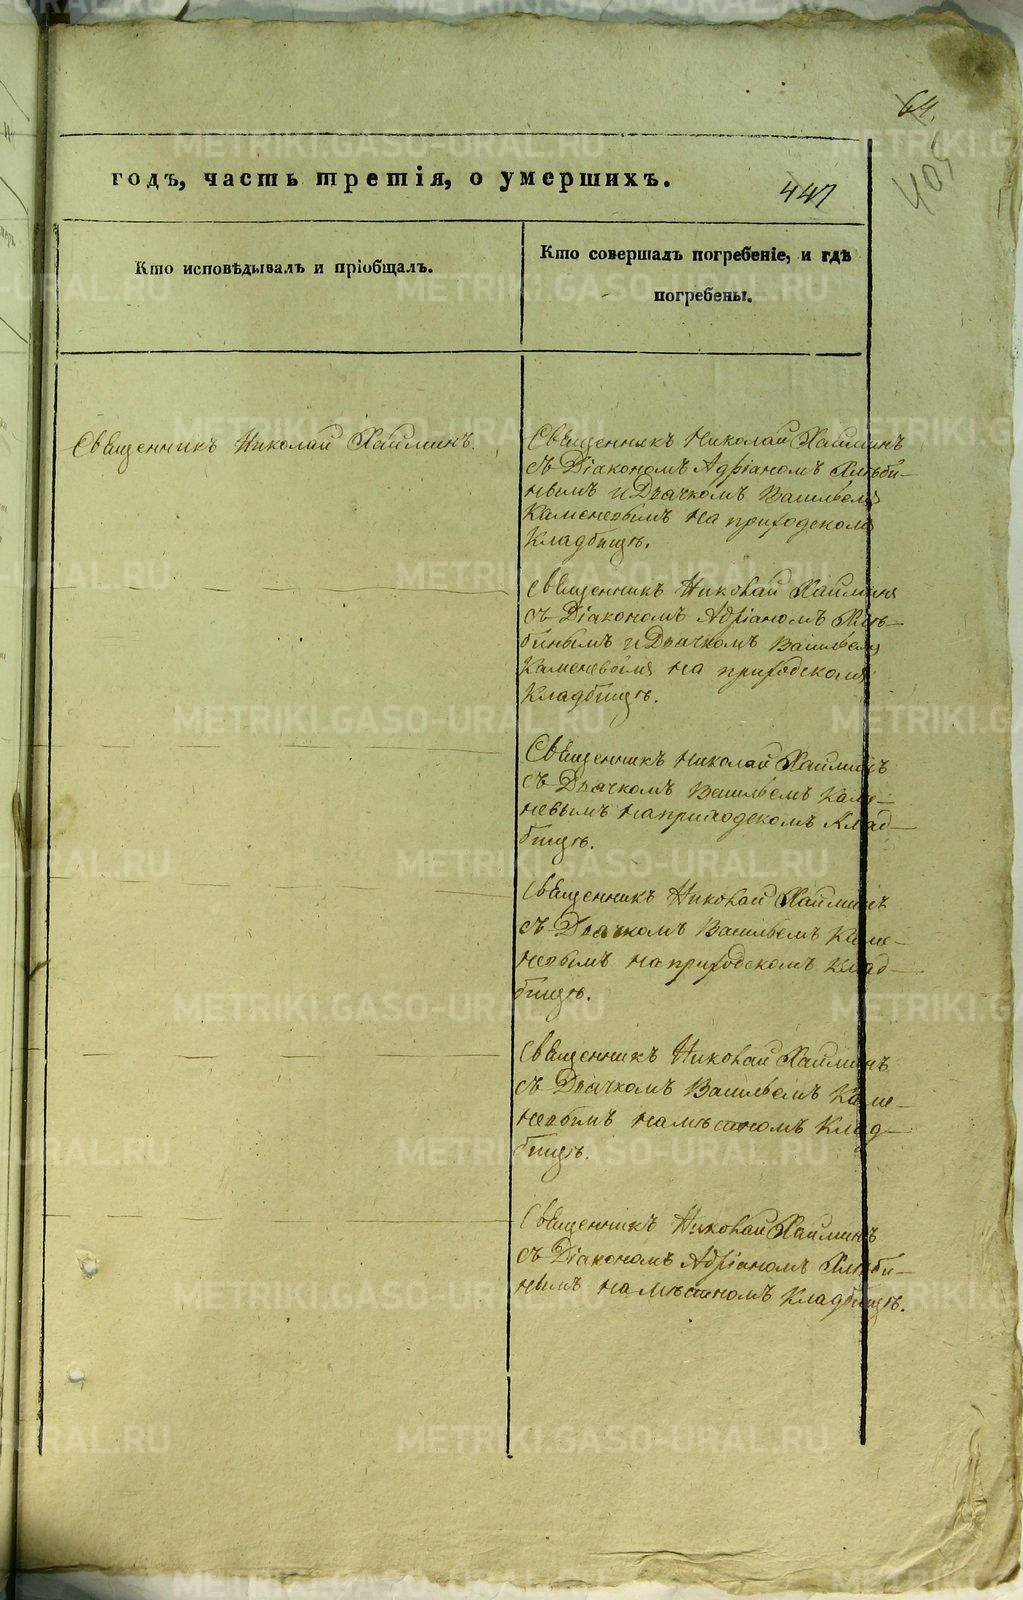 64.
405
годъ, часть третія, о умершихъ.
447
Кто исповѣдывалъ и пріобщалъ.
Кто совершалъ погребеніе, и гдѣ
погребены.
Священникъ Николай Хаймин
Священникъ Николай Хайминъ
съ Діакономъ Адріаномъ
и Дьячкомъ Васильемъ
Каменевымъ на приходскомъ
Кладбищѣ.
Священникъ Николай Хайминъ
съ Діакономъ Адріаномъ
и Дьячкомъ Васильемъ
Каменевымъ на приходскомъ
Кладбищѣ.
Священникъ Николай Хайминъ
съ Дьячкомъ Васильемъ Каме-
невымъ на приходскомъ Клад-
бищѣ.
Священникъ Николай Хайминъ
съ Дьячкомъ Васильемъ Каме-
невымъ на приходскомъ Клад-
бищѣ.
Священникъ Николай Хайминъ
съ Дьячкомъ Васильемъ Каме-
невымъ на мѣстномъ Клад-
бищѣ.
Священникъ Николай Хайминъ
съ Діакономъ Адріаномъ
на мѣстномъ Кладбищѣ.
METRIKI.GASO-URAL.RU